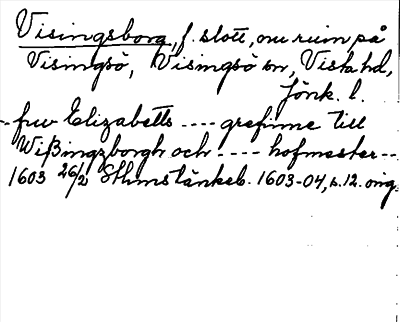 Visingsborg, f. slott, nu ruin på
Visingsö, Visingsö sn, Vista hd,
Jönk. l.
-- fru Elizabetts ---- grefinne till
Wißingzborgh och ---- hofmester --
1603 26/2 Sthms tänkeb. 1603-04, s. 12. orig.